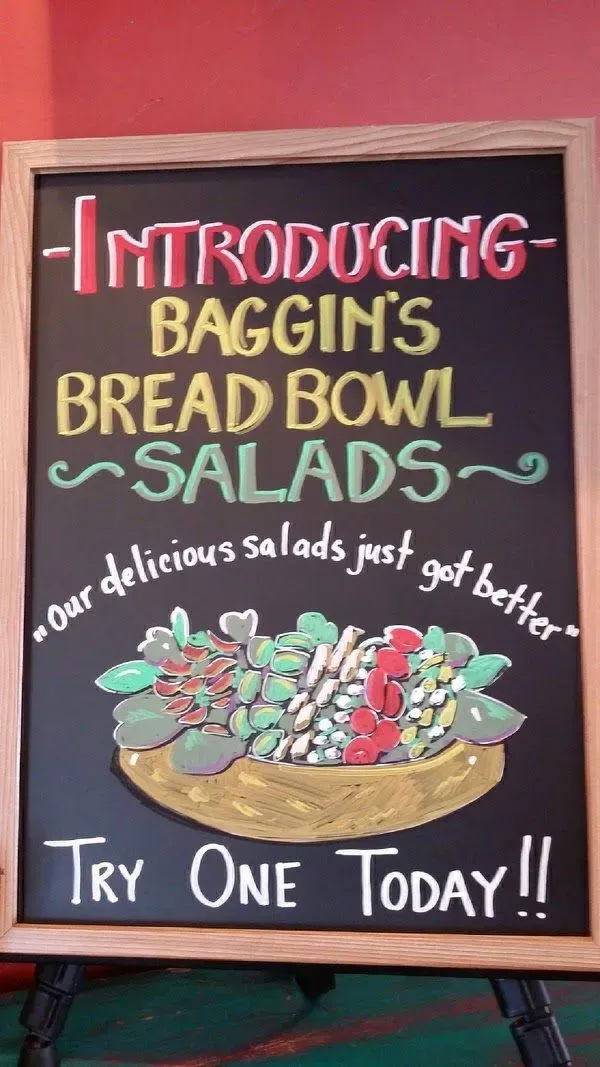 -INTRODUCING-
BAGGIN'S
BREAD BOWL
~SALADS~
"our delicious salads just got better"
TRY ONE TODAY!!